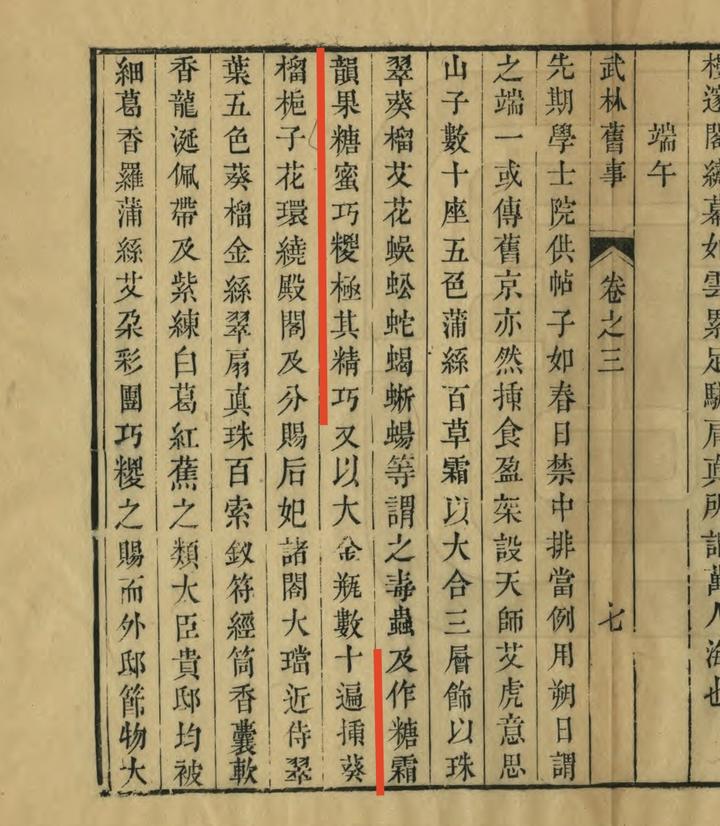 樓邃閣繡幕如雲累足駢肩真所謂萬人海也
端午
武林舊事 卷之三 七
先期學士院供帖子如春日禁中排當例用朔日謂
之端一或傳舊京亦然揷食盈架設天師艾虎意思
山子數十座五色蒲絲百草霜以大合三層飾以珠
翠葵榴艾花蜈蚣蛇蝎蜥蜴等謂之毒蟲及作糖霜
韻果糖蜜巧糉極其精巧又以大金瓶數十遍揷葵
榴梔子花環繞殿閣及分賜后妃諸閣大璫近侍翠
葉五色葵榴金絲翠扇真珠百索釵符經筒香囊軟
香龍涎佩帶及紫練白葛紅蕉之類大臣貴邸均被
細葛香羅蒲絲艾朶彩團巧糉之賜而外邸節物大